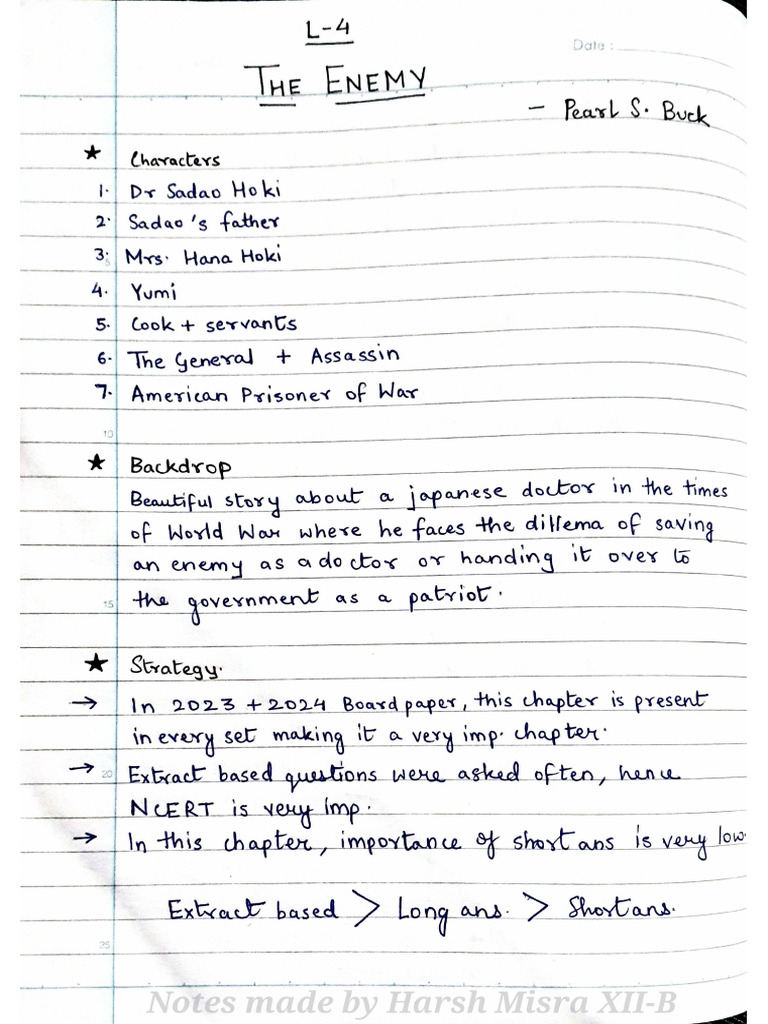 L-4
Date :
THE ENEMY
- Pearl S. Buck
★ Characters
1. Dr Sadao Hoki
2. Sadao's father
3. Mrs. Hana Hoki
4. Yumi
5. Cook + servants
6. The General + Assassin
7. American Prisoner of War
10
★ Backdrop
Beautiful story about a japanese doctor in the times
of World War where he faces the dillema of saving
an enemy as a doctor or handing it over to
15 the government as a patriot.
★ Strategy.
→ In 2023 + 2024 Board paper, this chapter is present
in every set making it a very imp. chapter.
→ 20 Extract based questions were asked often, hence
NCERT is very Imp.
→ In this chapter, importance of short ans is very low.
Extract based > Long ans. > Short ans.
25
Notes made by Harsh Misra XII-B